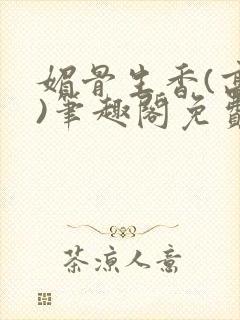 媚骨生香(高
)笔趣阁免费
茶凉人意